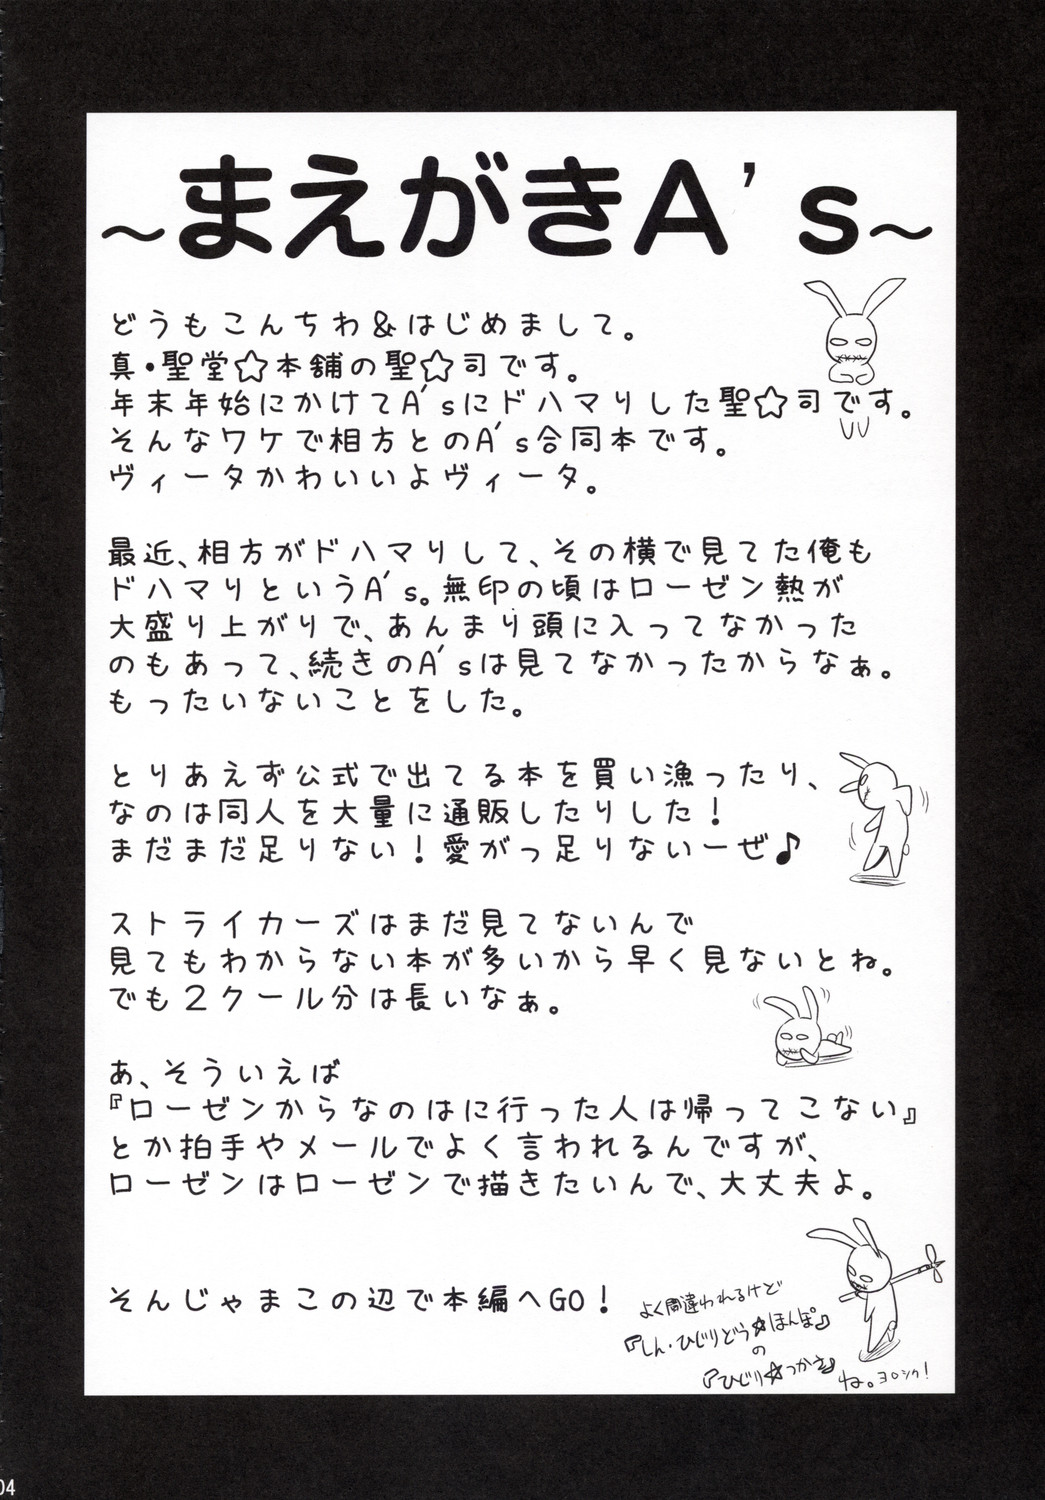 ~まえがきA's~
どうもこんちわ&はじめまして。
真・聖堂☆本舗の聖☆司です。
年末年始にかけてA'sにドハマりした聖☆司です。
そんなワケで相方とのA's合同本です。
ヴィータかわいいよヴィータ。
最近、相方がドハマりして、その横で見てた俺も
ドハマりというA's。無印の頃はローゼン熱が
大盛り上がりで、あんまり頭に入ってなかった
のもあって、続きのA'sは見てなかったからなぁ。
もったいないことをした。
とりあえず公式で出てる本を買い漁ったり、
なのは同人を大量に通販したりした!
まだまだ足りない!愛がっ足りないーぜ♪
ストライカーズはまだ見てないんで
見てもわからない本が多いから早く見ないとね。
でも2クール分は長いなぁ。
あ、そういえば
『ローゼンからなのはに行った人は帰ってこない』
とか拍手やメールでよく言われるんですが、
ローゼンはローゼンで描きたいんで、大丈夫よ。
そんじゃまこの辺で本編へGO!
よく間違われるけど
『しん・ひじりどう☆ほんぽ』
の
『ひじり☆つかさ』ね。ヨロシク!
04